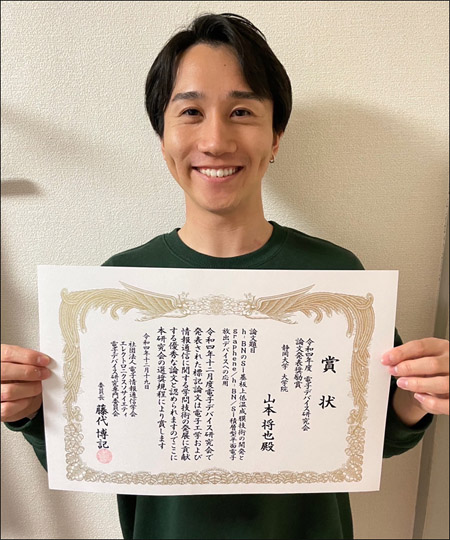 賞状
令和四年度 電子デバイス研究会
論文発表奨励賞
静岡大学 大学院
山本 将也殿
論文題目
h-BNのSi基板上低温成膜技術の開発と
graphene/h-BN/Si積層型平面電子
放出デバイスへの応用
令和四年十二月度電子デバイス研究会で
発表された標記論文は電子工学および
情報通信に関する学問技術の発展に貢献
する優秀な論文と認められますのでここに
本研究会の選奨規程により賞します
令和四年十二月十九日
社団法人電子情報通信学会
エレクトロニクスソサイティ
電子デバイス研究専門委員会
委員長 藤代 博記